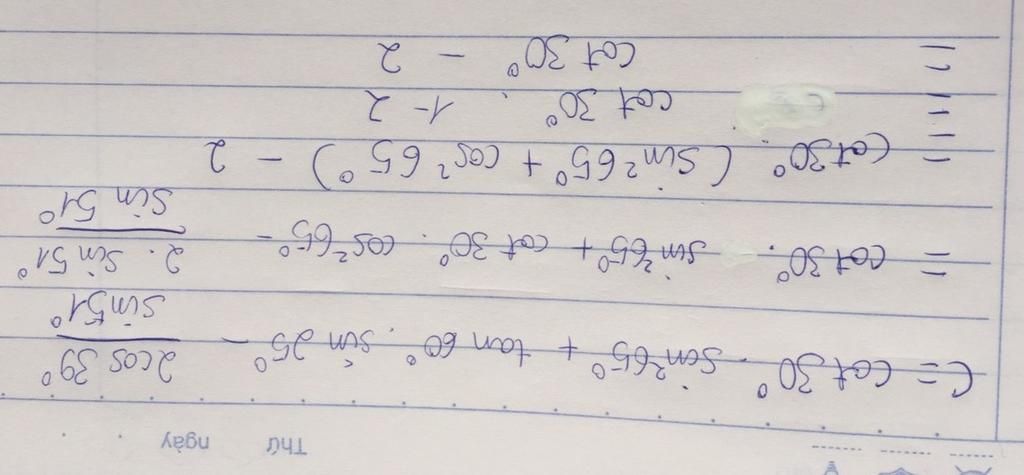 Thứ ngày
C = cot 30° . sin²65° + tan 60° . sin 25° - 2cos 39° / sin 51°
= cot 30° . sin²65° + cot 30° . cos²65° - 2 . sin 51° / sin 51°
= cot 30° . (sin²65° + cos²65°) - 2
= cot 30° . 1 - 2
= cot 30° - 2